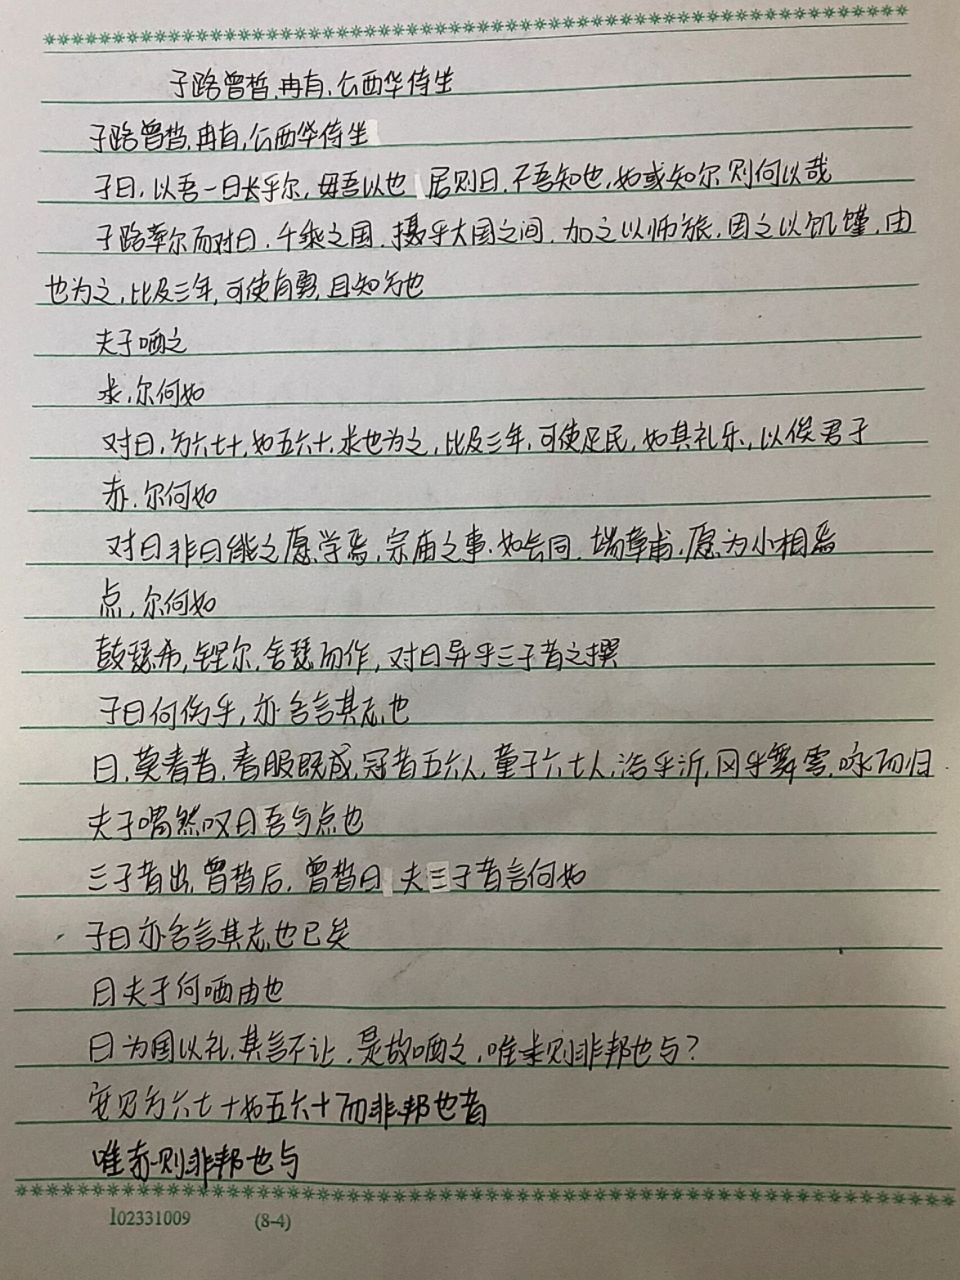 子路曾皙,冉有,公西华侍坐
子路曾皙,冉有,公西华侍坐
子曰,以吾一日长乎尔,毋吾以也 居则曰,不吾知也,如或知尔,则何以哉
子路率尔而对曰,千乘之国,摄乎大国之间,加之以师旅,因之以饥馑,由
也为之,比及三年,可使有勇,且知方也
夫子哂之
求,尔何如
对曰,方六七十,如五六十,求也为之,比及三年,可使足民,如其礼乐,以俟君子
赤,尔何如
对曰非曰能之愿学焉,宗庙之事,如会同,端章甫,愿为小相焉
点,尔何如
鼓瑟希,铿尔,舍瑟而作,对曰异乎三子者之撰
子曰何伤乎,亦各言其志也
曰,莫春者,春服既成,冠者五六人,童子六七人,浴乎沂,风乎舞雩,咏而归
夫子喟然叹曰吾与点也
三子者出,曾皙后,曾皙曰,夫三子者言何如
子曰亦各言其志也已矣
曰夫子何哂由也
曰为国以礼,其言不让,是故哂之,唯求则非邦也与?
安见方六七十如五六十而非邦也者
唯赤则非邦也与
102331009 (8-4)